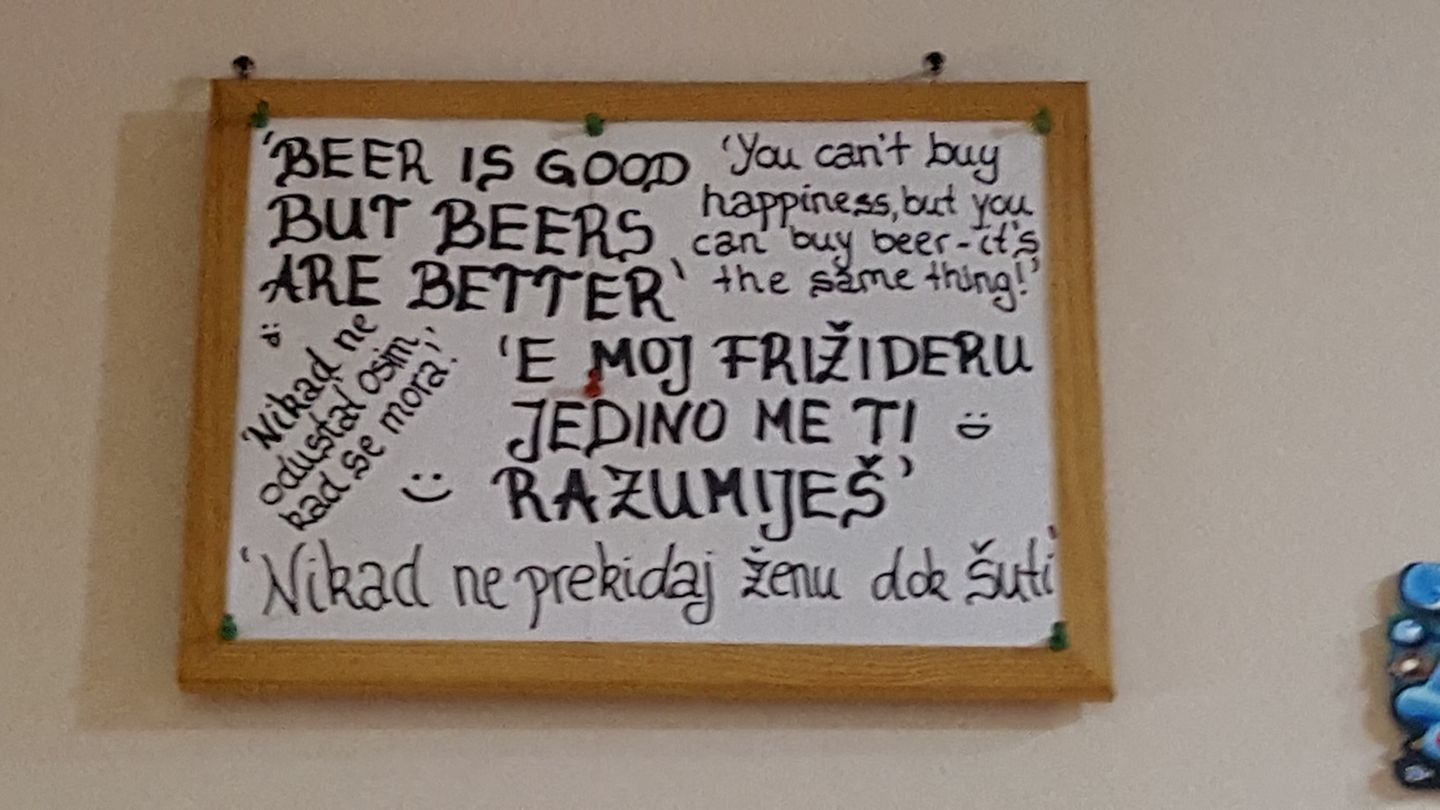 'BEER IS GOOD
BUT BEERS
ARE BETTER'
'You can't buy
happiness, but you
can buy beer - it's
the same thing!'
'Nikad ne
odustat' osim
kad se mora!'
'E MOJ FRIŽIDERU
JEDINO ME TI
RAZUMIJEŠ'
'Nikad ne prekidaj ženu dok šuti'